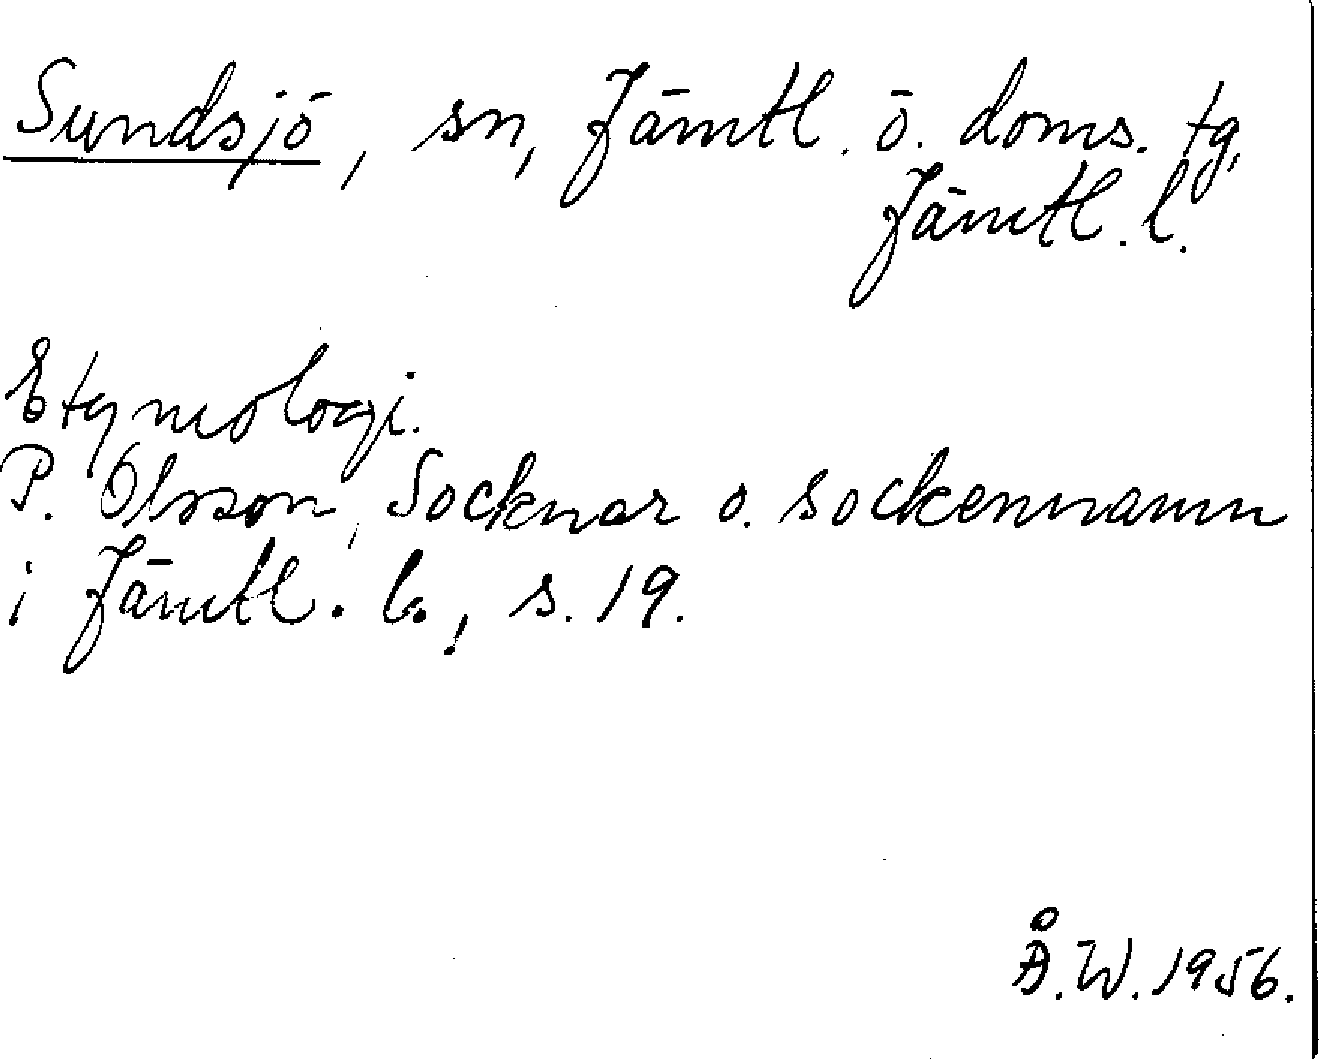 Sundsjö, sn, Jämtl. ö. doms. tg,
Jämtl. l.
Etymologi.
P. Olsson, Socknar o. sockennamn
i Jämtl. l., s. 19.
Å.W. 1956.